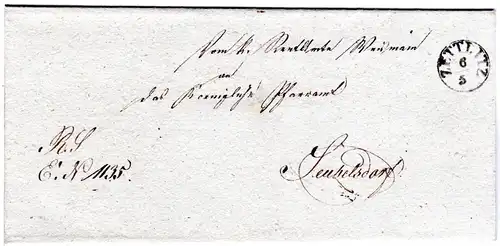 Vom k. Rentamte Weismain
ZETTLITZ
6
5
an
das Koenigliche Pfarramt
R. S.
E. N. 1135.
Seubelsdorf